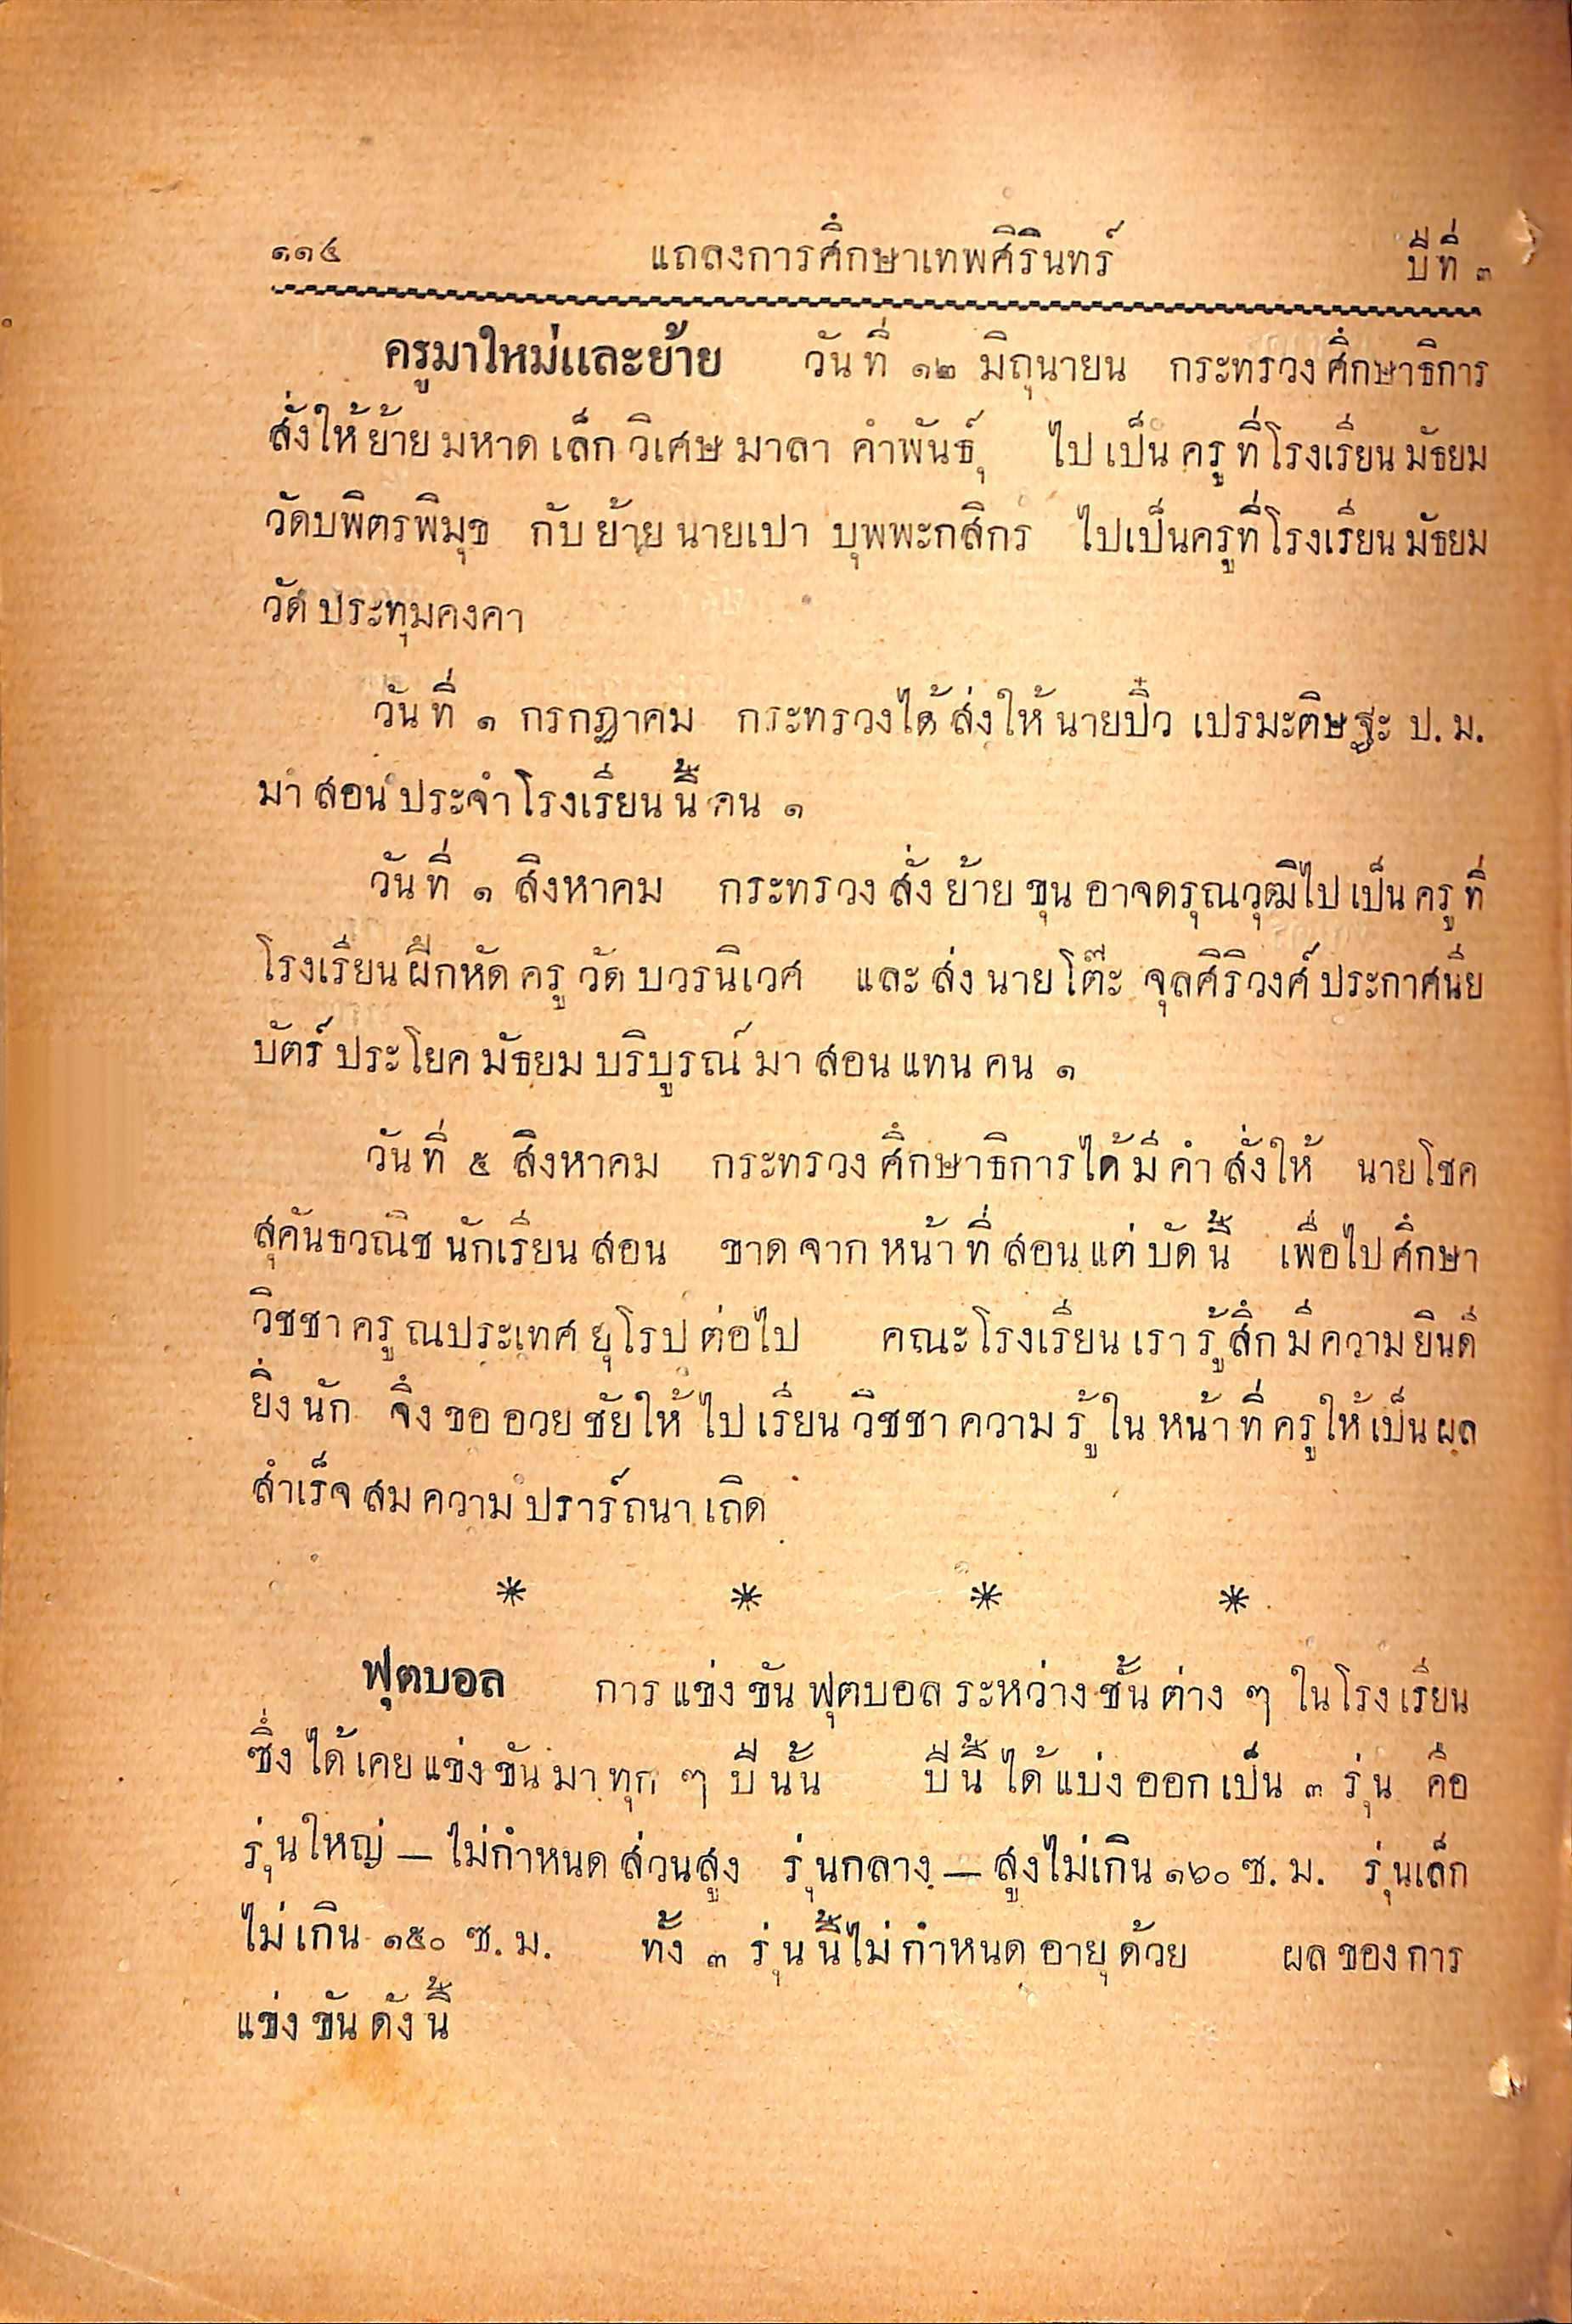 ๑๑๔ แถลงการศึกษาเทพศิรินทร์ ปีที่ ๓
ครูมาใหม่และย้าย วันที่ ๑๒ มิถุนายน กระทรวงศึกษาธิการ
สั่งให้ย้ายมหาดเล็กวิเศษมาลา คำพันธ์ุ ไปเป็นครูที่โรงเรียนมัธยม
วัดบพิตรพิมุข กับย้ายนายเปา บุพพะกสิกร ไปเป็นครูที่โรงเรียนมัธยม
วัดประทุมคงคา
วันที่ ๑ กรกฎาคม กระทรวงได้ส่งให้นายปิ๋ว เปรมะดิษฐะ ป.ม.
มาสอนประจำโรงเรียนนี้คน ๑
วันที่ ๑ สิงหาคม กระทรวงสั่งย้ายขุนอาจดรุณวุฒิไปเป็นครูที่
โรงเรียนฝึกหัดครูวัดบวรนิเวศ และส่งนายโต๊ะ จุลศิริวงศ์ประกาศนีย
บัตร์ประโยคมัธยมบริบูรณ์มาสอนแทนคน ๑
วันที่ ๕ สิงหาคม กระทรวงศึกษาธิการได้มีคำสั่งให้ นายโชค
สุคันธวณิชนักเรียนสอน ขาดจากหน้าที่สอนแต่บัดนี้ เพื่อไปศึกษา
วิชชาครูณประเทศยุโรปต่อไป คณะโรงเรียนเรารู้สึกมีความยินดี
ยิ่งนัก จึ่งขออวยชัยให้ไปเรียนวิชชาความรู้ในหน้าที่ครูให้เป็นผล
สำเร็จสมความปรารถนาเถิด
* * * *
ฟุตบอล การแข่งขันฟุตบอลระหว่างชั้นต่าง ๆ ในโรงเรียน
ซึ่งได้เคยแข่งขันมาทุก ๆ ปีนั้น ปีนี้ได้แบ่งออกเป็น ๓ รุ่น คือ
รุ่นใหญ่ — ไม่กำหนดส่วนสูง รุ่นกลาง — สูงไม่เกิน ๑๖๐ ซ.ม. รุ่นเล็ก
ไม่เกิน ๑๕๐ ซ.ม. ทั้ง ๓ รุ่นนี้ไม่กำหนดอายุด้วย ผลของการ
แข่งขันดังนี้